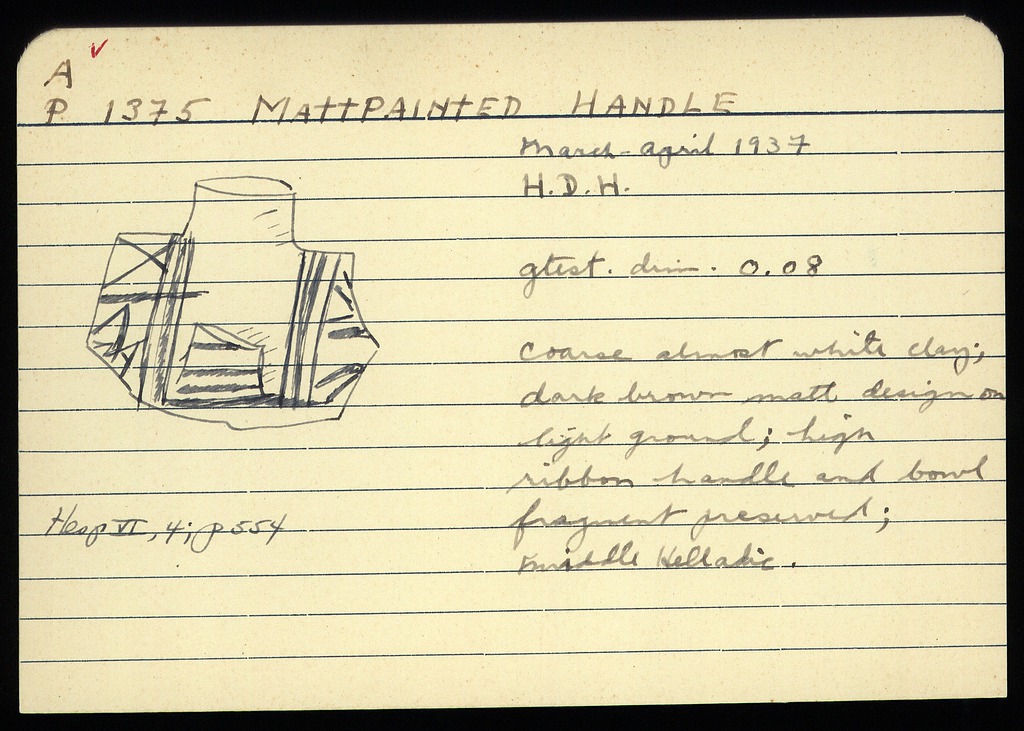 A
P 1375 MATTPAINTED HANDLE
March - April 1937
H.D.H.
gtest. dim. 0.08
coarse almost white clay;
dark brown matt design on
light ground; high
ribbon handle and bowl
fragment preserved;
Middle Helladic.
Hesp VI, 4; p 554